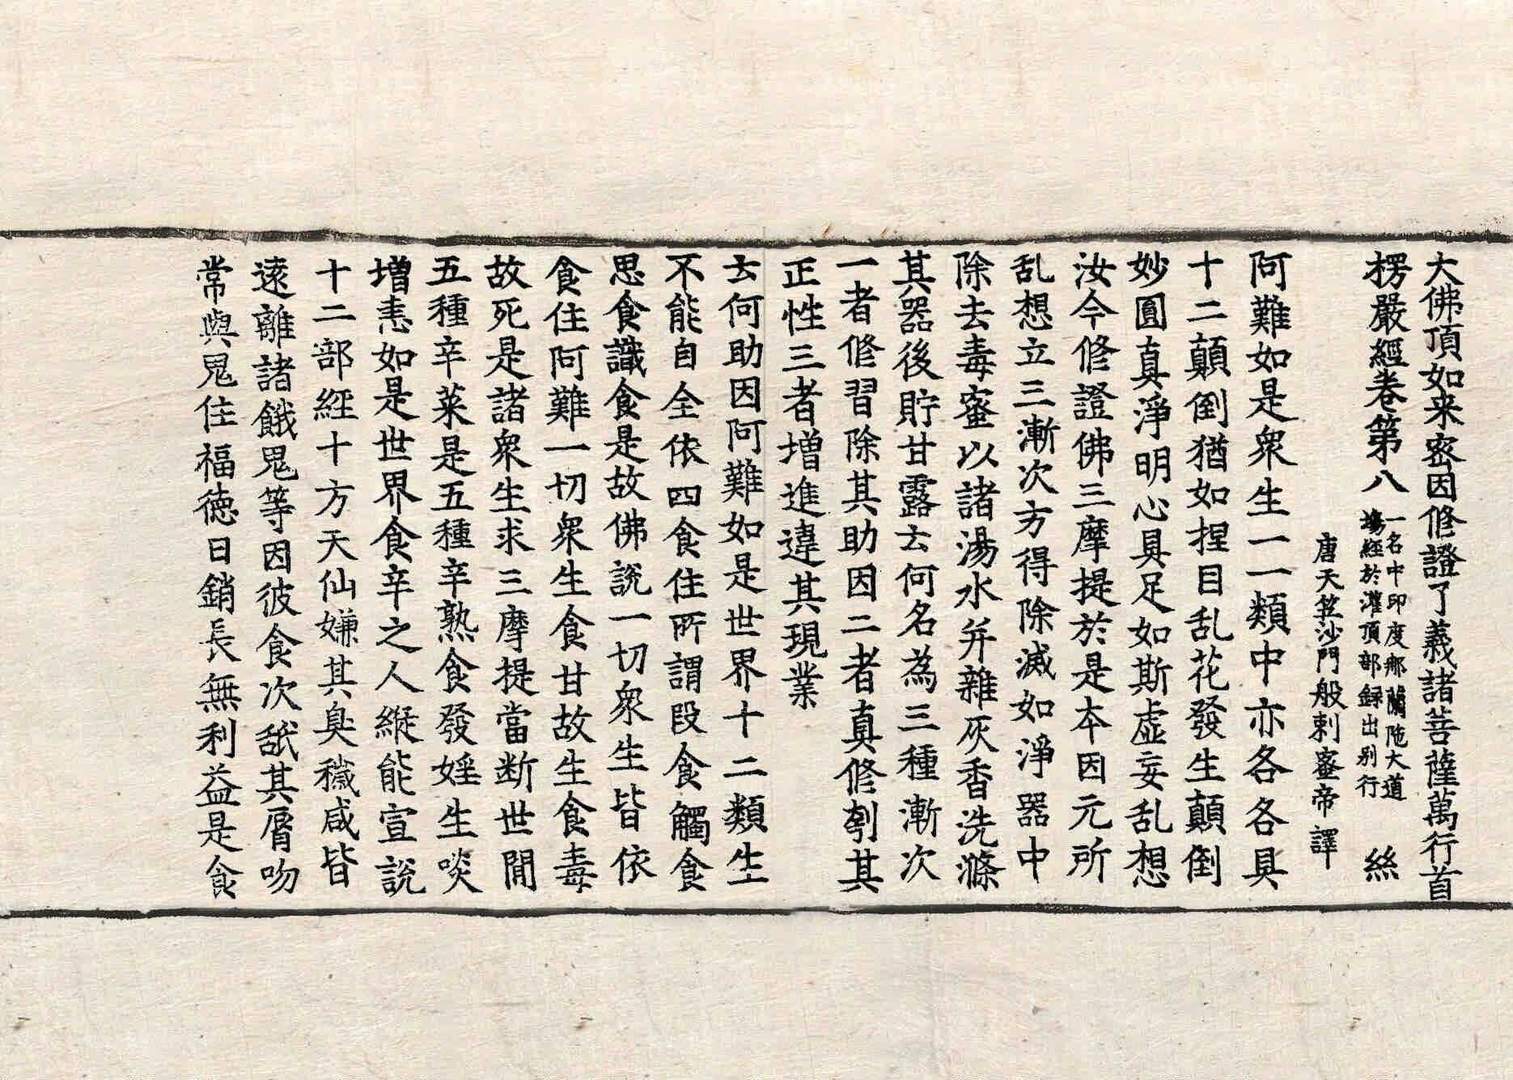 大佛頂如来密因修證了義諸菩薩萬行首
楞嚴經卷第八 一名中印度那蘭陁大道 絲
場經於灌頂部録出别行
唐天竺沙門般剌蜜帝譯
阿難如是衆生一一類中亦各各具
十二顛倒猶如捏目乱花發生顛倒
妙圓真淨明心具足如斯虚妄乱想
汝今修證佛三摩提於是本因元所
乱想立三漸次方得除滅如淨器中
除去毒蜜以諸湯水并雜灰香洗滌
其器後貯甘露云何名為三種漸次
一者修習除其助因二者真修刳其
正性三者增進違其現業
云何助因阿難如是世界十二類生
不能自全依四食住所謂段食觸食
思食識食是故佛說一切衆生皆依
食住阿難一切衆生食甘故生食毒
故死是諸衆生求三摩提當断世間
五種辛菜是五種辛熟食發婬生啖
增恚如是世界食辛之人縱能宣說
十二部経十方天仙嫌其臭穢咸皆
遠離諸餓鬼等因彼食次舐其脣吻
常與鬼住福徳日銷長無利益是食